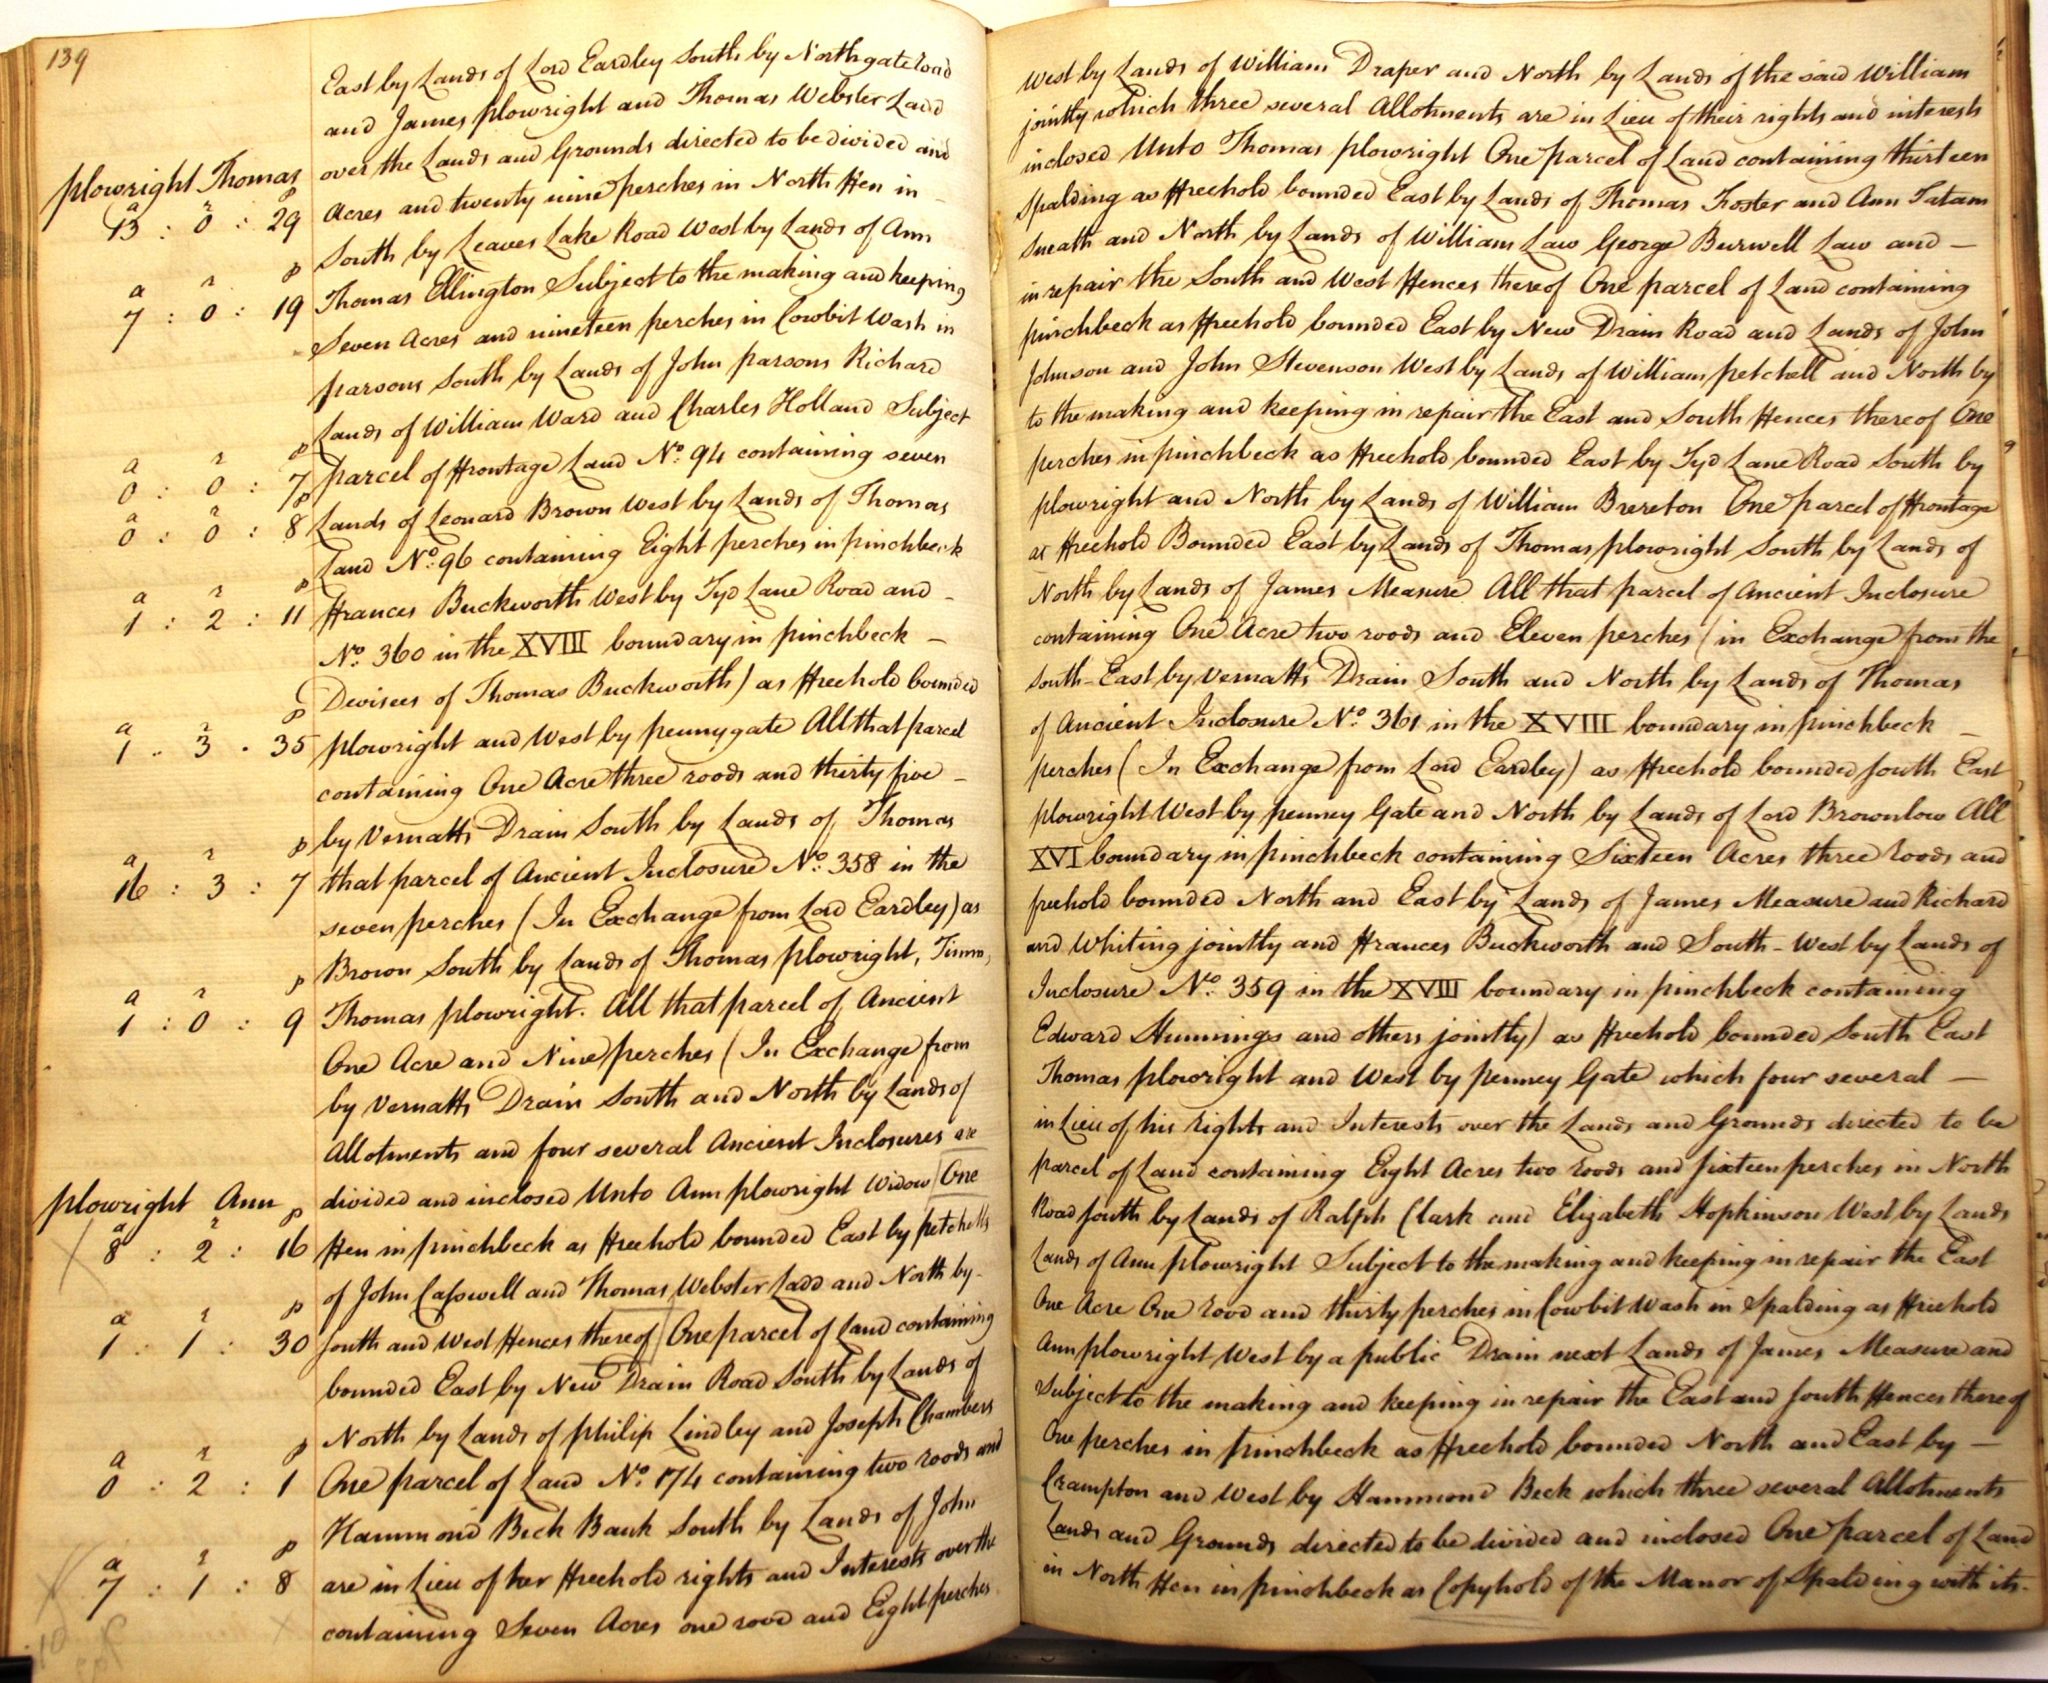 139
East by Lands of Lord Eardley South by Northgate road West by Lands of William Draper and North by Lands of the said William
and James plowright and Thomas Webster Ladd jointly which three several Allotments are in Lieu of their rights and interests
over the Lands and Grounds directed to be divided and inclosed Unto Thomas plowright One parcel of Land containing thirteen
plowright Thomas
a r p
13 : 0 : 29
Acres and twenty nine perches in North Fen in - Spalding as Freehold bounded East by Lands of Thomas Foster and Ann Tatam
South by Leaves Lake Road West by Lands of Ann Sneath and North by Lands of William Law George Burwell Law and -
a r p
7 : 0 : 19
Thomas Ellington Subject to the making and keeping in repair the South and West Fences thereof One parcel of Land containing
Seven Acres and nineteen perches in Cowbit Wash in pinchbeck as Freehold bounded East by New Drain Road and Lands of John
parsons South by Lands of John parsons Richard Johnson and John Stevenson West by Lands of William petchell and North by
Lands of William Ward and Charles Holland Subject to the making and keeping in repair the East and South Fences thereof One
a r p
0 : 0 : 7
parcel of Frontage Land No. 94 containing seven perches in pinchbeck as Freehold bounded East by Tyd Lane Road South by
a r p
0 : 0 : 8
Lands of Leonard Brown West by Lands of Thomas plowright and North by Lands of William Brereton One parcel of Frontage
Land No. 96 containing Eight perches in pinchbeck as Freehold Bounded East by Lands of Thomas plowright South by Lands of
a r p
1 : 2 : 11
Frances Buckworth West by Tyd Lane Road and - North by Lands of James Measure All that parcel of Ancient Inclosure
No. 360 in the XVIII boundary in pinchbeck - containing One Acre two roods and Eleven perches (in Exchange from the
Devisees of Thomas Buckworth) as Freehold bounded South-East by Vernatts Drain South and North by Lands of Thomas
a r p
1 : 3 : 35
plowright and West by pennygate All that parcel of Ancient Inclosure No. 361 in the XVIII boundary in pinchbeck -
containing One Acre three roods and thirty five - perches (In Exchange from Lord Eardley) as Freehold bounded South East
by Vernatts Drain South by Lands of Thomas plowright West by penney Gate and North by Lands of Lord Brownlow All
a r p
16 : 3 : 7
that parcel of Ancient Inclosure No. 358 in the XVI boundary in pinchbeck containing Sixteen Acres three roods and
seven perches (In Exchange from Lord Eardley) as freehold bounded North and East by Lands of James Measure and Richard
Brown South by Lands of Thomas plowright, and Whiting jointly and Frances Buckworth and South-West by Lands of
a r p
1 : 0 : 9
Thomas plowright. All that parcel of Ancient Inclosure No. 359 in the XVIII boundary in pinchbeck containing
One Acre and Nine perches (In Exchange from Edward Hunnings and others jointly) as Freehold bounded South East
by Vernatts Drain South and North by Lands of Thomas plowright and West by penney Gate which four several -
Allotments and four several Ancient Inclosures are in Lieu of his rights and Interests over the Lands and Grounds directed to be
plowright Ann
a r p
8 : 2 : 16
divided and inclosed Unto Ann plowright Widow One parcel of Land containing Eight Acres two roods and sixteen perches in North
Fen in pinchbeck as Freehold bounded East by petchells Road South by Lands of Ralph Clark and Elizabeth Hopkinson West by Lands
of John Casswell and Thomas Webster Ladd and North by - Lands of Ann plowright Subject to the making and keeping in repair the East
a r p
1 : 1 : 30
South and West Fences thereof One parcel of Land containing One Acre One rood and thirty perches in Cowbit Wash in Spalding as Freehold
bounded East by New Drain Road South by Lands of Ann plowright West by a public Drain next Lands of James Measure and
North by Lands of philip Lindley and Joseph Chambers Subject to the making and keeping in repair the East and South Fences thereof
a r p
0 : 2 : 1
One parcel of Land No. 174 containing two roods and One perches in pinchbeck as Freehold bounded North and East by -
Hammond Beck Bank South by Lands of John Crampton and West by Hammond Beck which three several Allotments
a r p
7 : 1 : 8
are in Lieu of her Freehold rights and Interests over the Lands and Grounds directed to be divided and inclosed One parcel of Land
containing Seven Acres one rood and Eight perches in North Fen in pinchbeck as Copyhold of the Manor of Spalding with its -